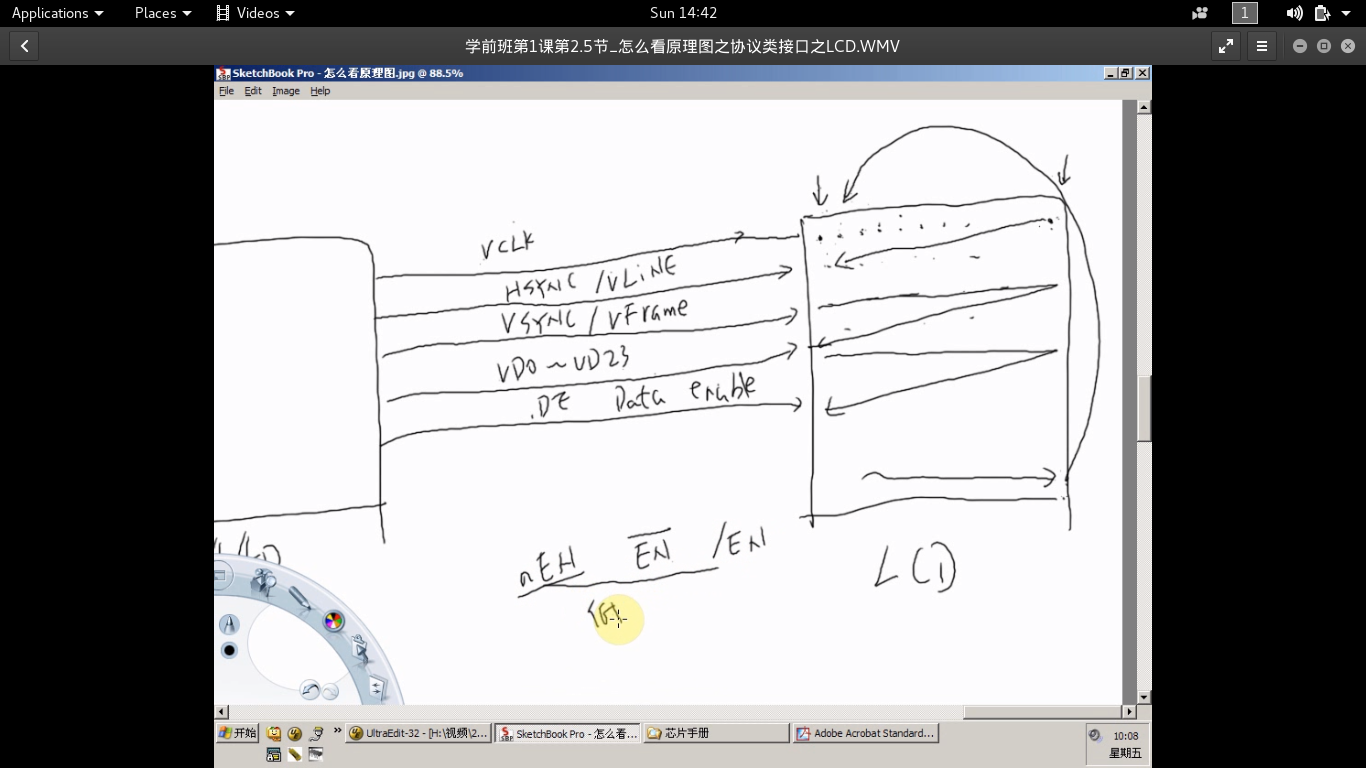 Applications Places Videos Sun 14:42 1
学前班第1课第2.5节_怎么看原理图之协议类接口之LCD.WMV
SketchBook Pro - 怎么看原理图.jpg @ 88.5%
File Edit Image Help
VCLK
HSYNC / VLiNE
VSYNC / VFrame
VD0 ~ VD23
.DE Data enable
nEN EN /EN
LCD
开始 UltraEdit-32 - [H:\视频\2... SketchBook Pro - 怎么看... 芯片手册 Adobe Acrobat Standard... 10:08
星期五